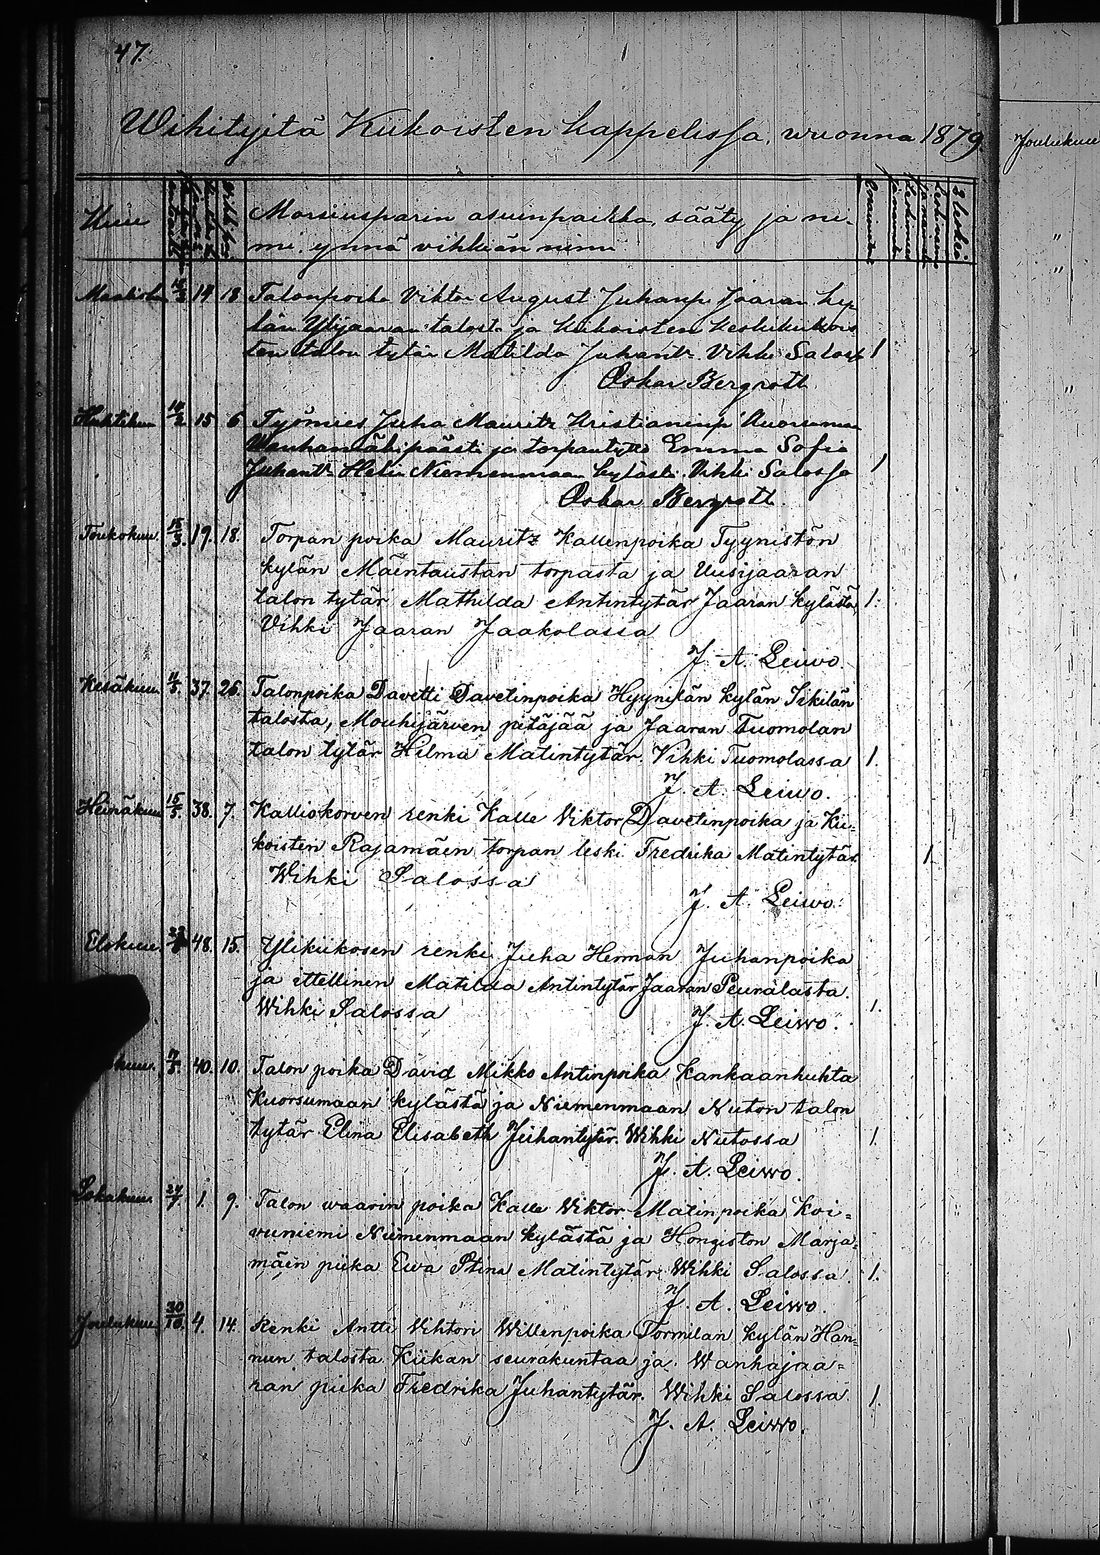 47.
Wihityitä Kiikoisten kappelissa, wuonna 1879
Kuu
Morsiusparin asuinpaikka, sääty ja ni-
mi ynnä vihkiän nimi
Maalisk. 14 18 Talonpoika Viktor August Juhanp. Jaaran ky
län Ylijaaran talost. ja Kiikoisten Keskikiikois
ten talon tytär Matilda Juhantr. Vihki Salossa 1
Oskar Bergrott
Huhtikuu 15 6 Työmies Juha Mauritz Kristianinp
ja torpantytär Emma Sofia
Juhantr. Helin Niemenmaan kylästä. Vihki Salossa 1
Oskar Bergrott.
Toukokuu. 19. 18. Torpan poika Mauritz Kallenpoika Tyynistön
kylän Mäentaustan torpasta ja Uusijaaran
talon tytär Mathilda Antintytär Jaaran kylästä, 1.
Vihki Jaaran Jaakolassa
J. A. Leiwo.
Kesäkuu. 37. 26. Talonpoika Davetti Davetinpoika Hyynilän kylän
talosta, Mouhijärven pitäjää ja Jaaran Tuomolan
talon tytär Hilma Matintytär. Vihki Tuomolassa 1.
J. A. Leiwo.
Heinäkuu 15/5. 38. 7. Kalliokorven renki Kalle Viktor Davetinpoika ja Kii-
koisten Rajamäen torpan leski Fredrika Matintytär. 1.
Wihki Salossa
J. A. Leiwo.
Elokuu. 48. 15. Ylikiikosen renki Juha Herman Juhanpoika
ja itellinen Matilda Antintytär Jaaran Peurälasta. 1.
Wihki Salossa J. A. Leiwo.
kuu. 40. 10. Talon poika David Mikko Antinpoika Kankaanhuhta
Kuorsumaan kylästä ja Niemenmaan Nuton talon
tytär Elina Elisabeth Juhantytär. Wihki Nutossa 1.
J. A. Leiwo.
Lokakuu. 1. 9. Talon waarin poika Kalle Wiktor Matinpoika Koi-
vuniemi Niemenmaan kylästä ja Hongiston Marja-
mäin piika Ewa Stina Matintytär. Wihki Salossa. 1.
J. A. Leiwo.
Joulukuu 30/10. 4. 14. Renki Antti Vihtori Willenpoika Tormilan kylän Han-
nun talosta Kiikan seurakuntaa ja Wanhajaa-
ran piika Fredrika Juhantytär. Wihki Salossa 1.
J. A. Leiwo.
Joulukuu
"
"
"